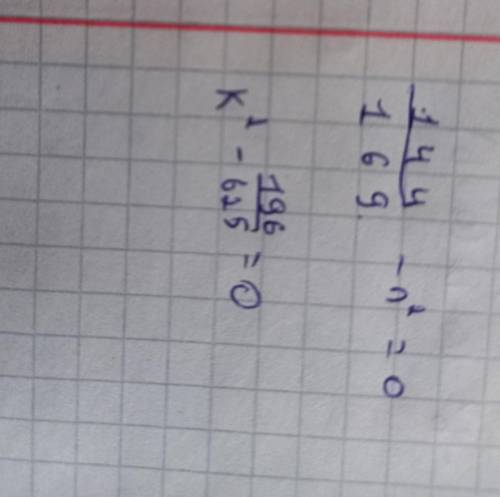 144/169 - n² = 0
K² - 196/625 = 0